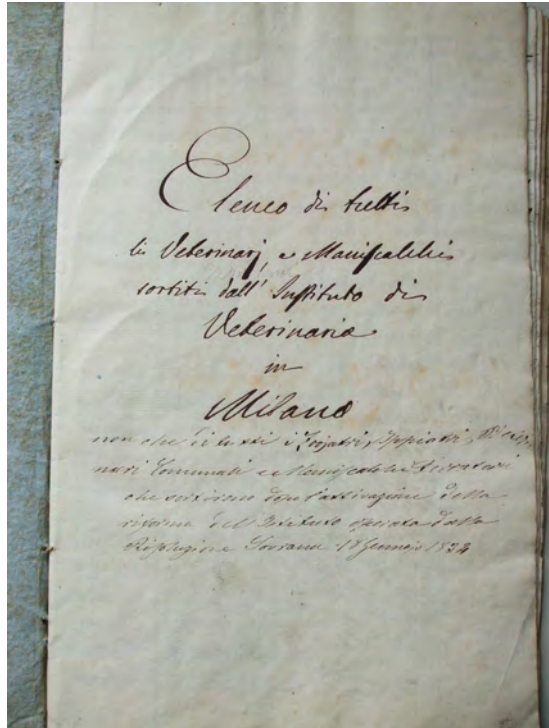 Elenco di tutti
li Veterinarj, e Maniscalchi
sortiti dall' Instituto di
Veterinaria
in
Milano
non che di tutti i Zoojatri, Ippiatri, Veteri-
narj Comunali e Maniscalchi ferratori
che sortirono dopo l'attivazione della
riforma dell'Istituto operata dalla
Risoluzione Sovrana 18 Gennajo